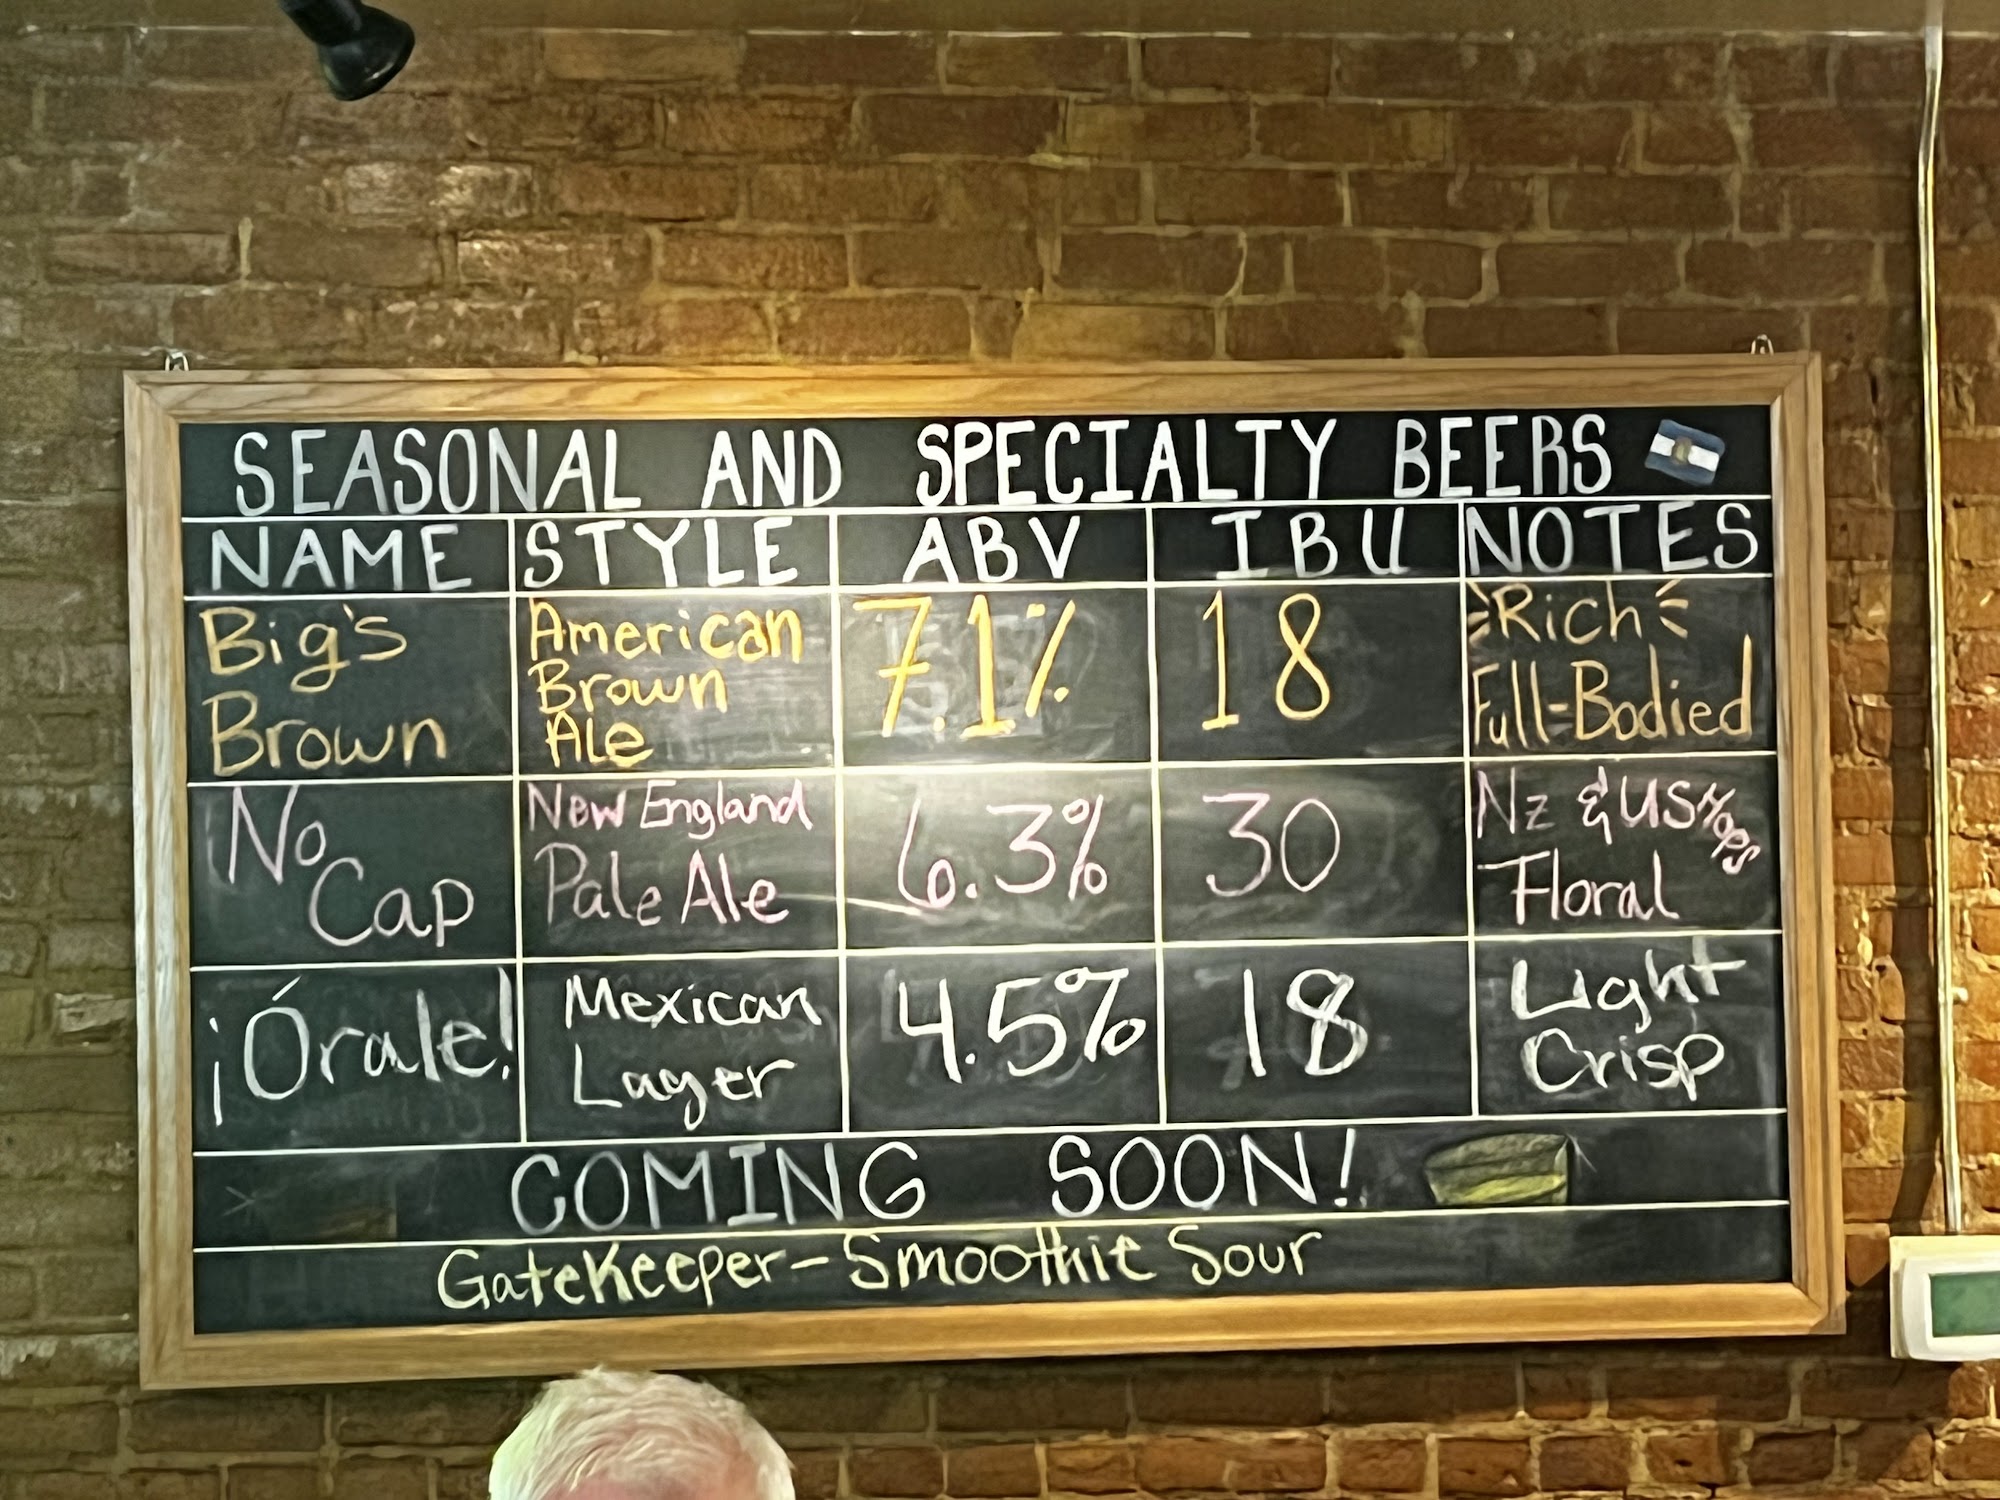 SEASONAL AND SPECIALTY BEERS
NAME STYLE ABV IBU NOTES
Big's Brown American Brown Ale 7.1% 18 Rich Full-Bodied
No Cap New England Pale Ale 6.3% 30 NZ & US Hops Floral
¡Órale! Mexican Lager 4.5% 18 Light Crisp
COMING SOON!
GateKeeper - Smoothie Sour